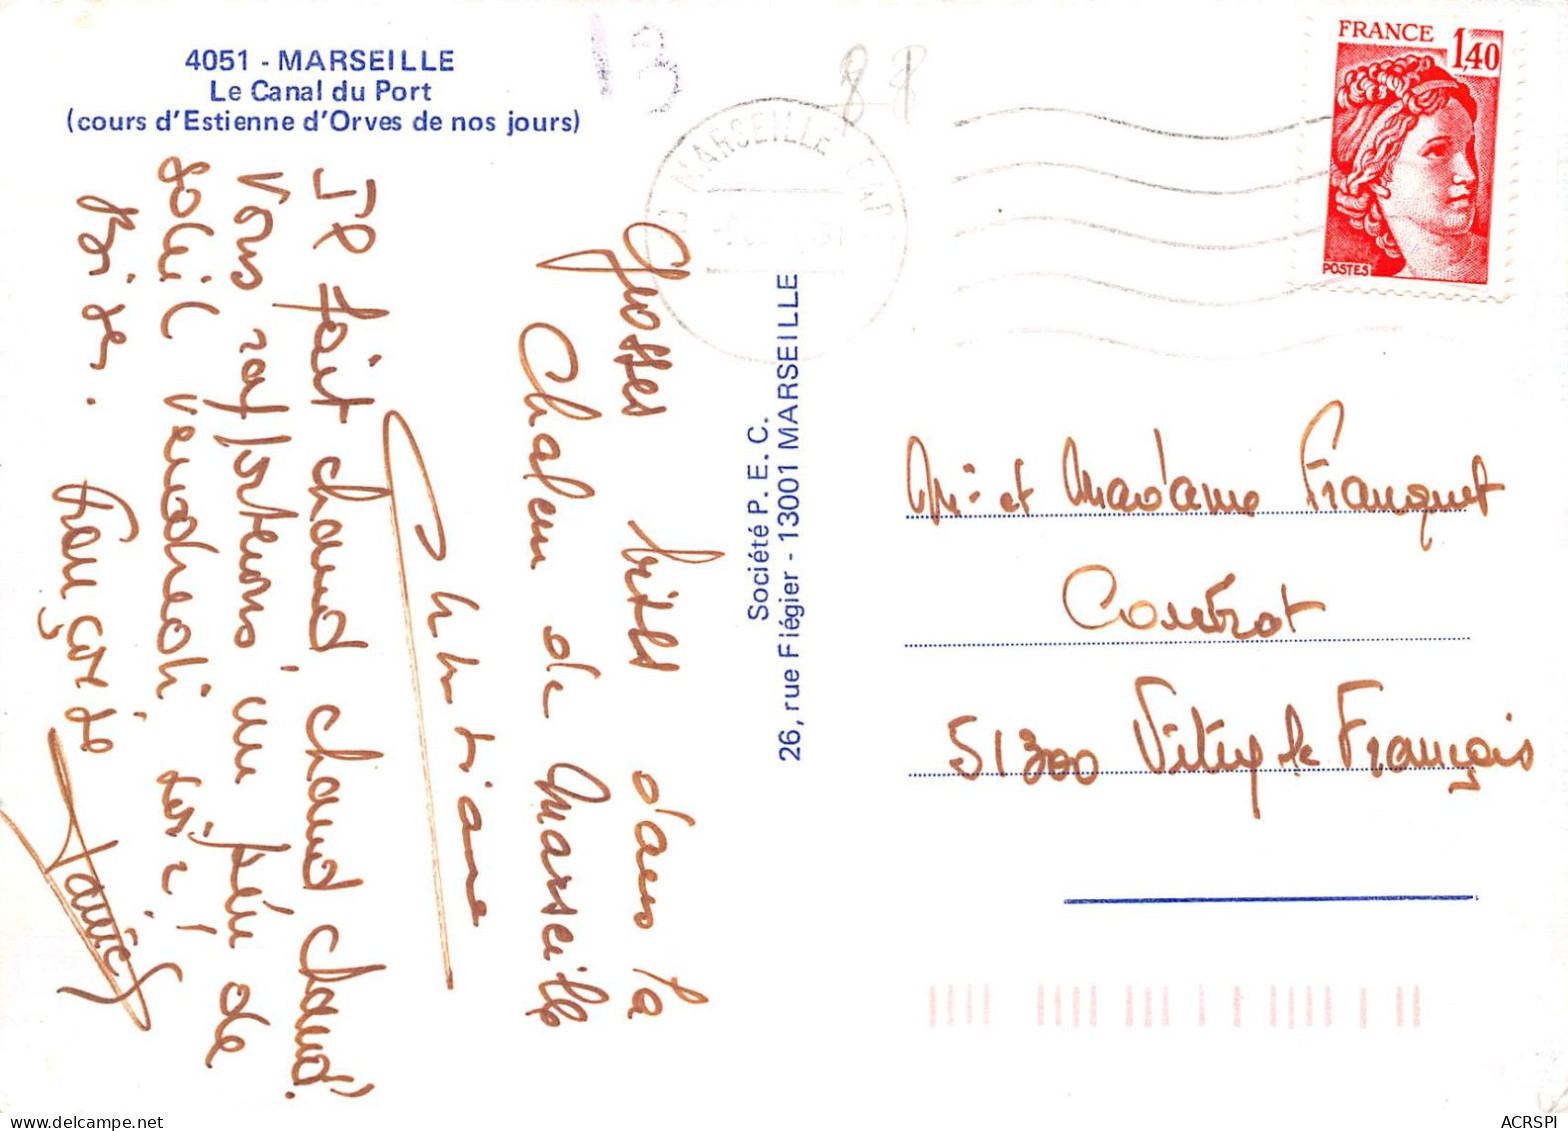 4051 - MARSEILLE
Le Canal du Port
(cours d'Estienne d'Orves de nos jours)
13
88
MARSEILLE GARE
FRANCE
1,40
POSTES
Grosses bises dans la
Chaleur de Marseille
Christiane
Il fait chaud, chaud chaud chaud.
Vous rapporterons un peu de
soleil vendredi soir!
Bises. Françoise
Société P. E. C.
26, rue Fiégier - 13001 MARSEILLE
Mr et Madame Franquet
51300 Vitry le François
ACRSPI